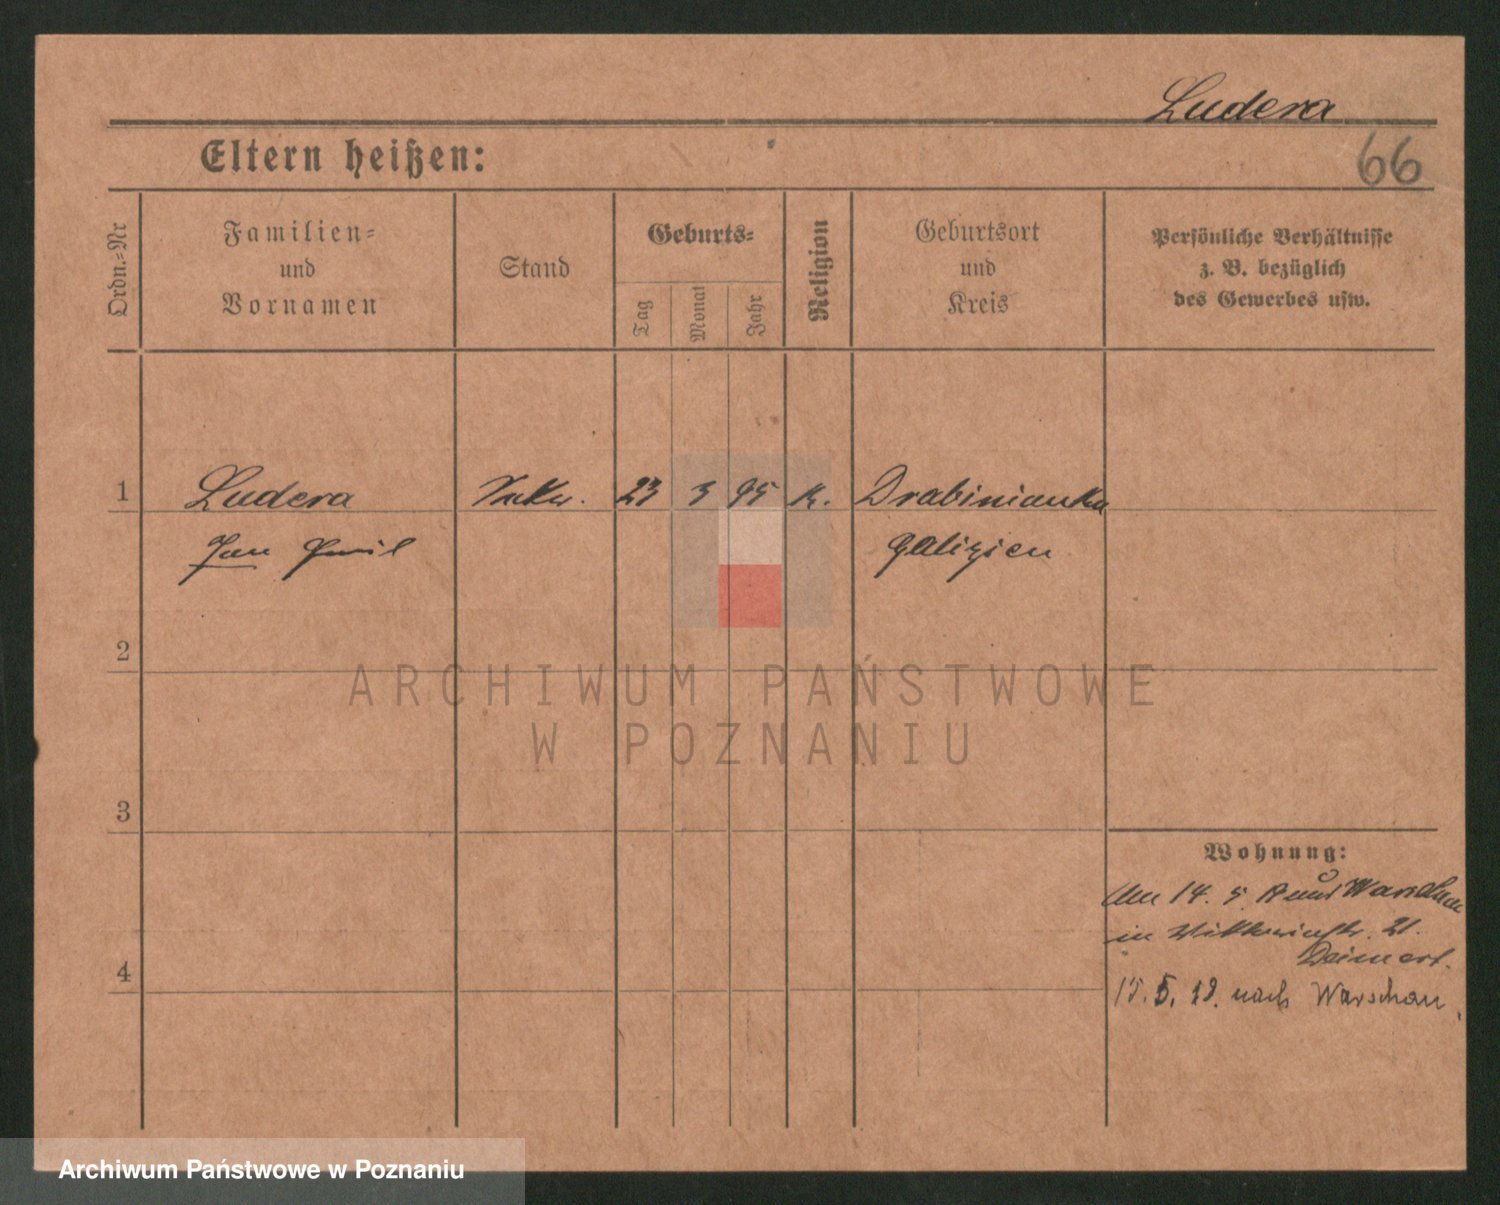 Ludera
66
Eltern heißen:
Ordn.=Nr
Familien=
und
Vornamen
Stand
Geburts=
Tag
Monat
Jahr
Religion
Geburtsort
und
Kreis
Persönliche Verhältnisse
z. B. bezüglich
des Gewerbes usw.
1
Ludera
23 3 95 K.
Drabinianka
Jan Emil
Galizien
2
ARCHIWUM PAŃSTWOWE
W POZNANIU
3
Wohnung:
Am 14. 5. aus Warschau
in Viktoriastr. 21.
4
15. 5. 19. nach Warschau.
Archiwum Państwowe w Poznaniu